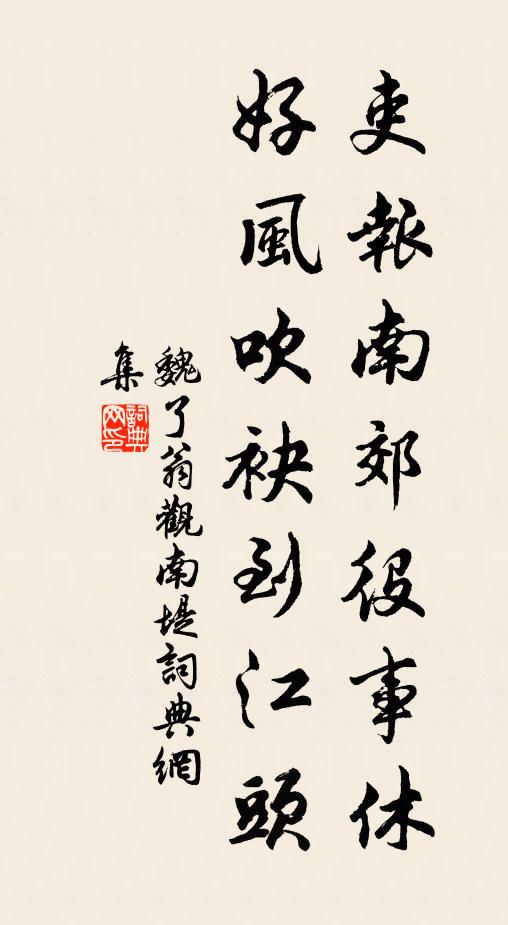 吏報南郊役事休
好風吹袂到江頭
魏了翁觀南堤詞典網
集
詞典网印